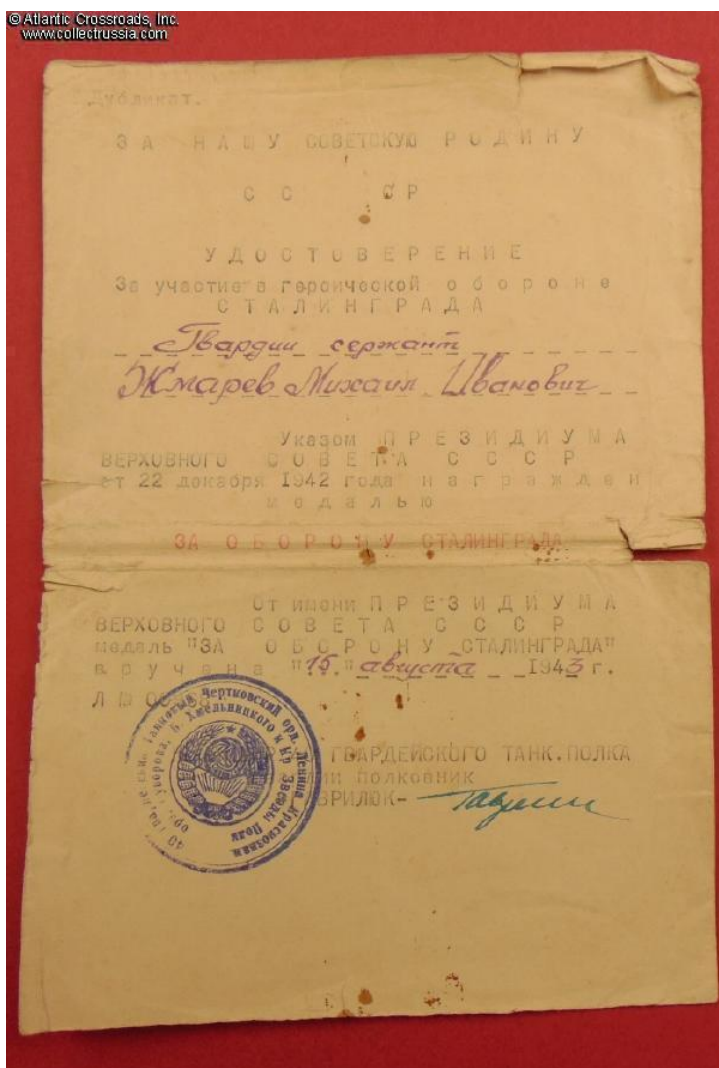 © Atlantic Crossroads, Inc.
www.collectrussia.com
Дубликат.
ЗА НАШУ СОВЕТСКУЮ РОДИНУ
СС СР
УДОСТОВЕРЕНИЕ
За участие в героической обороне
СТАЛИНГРАДА
Гвардии сержант
Жмарев Михаил Иванович
Указом ПРЕЗИДИУМА
ВЕРХОВНОГО СОВЕТА СССР
от 22 декабря 1942 года награжден
медалью
ЗА ОБОРОНУ СТАЛИНГРАДА
От имени ПРЕЗИДИУМА
ВЕРХОВНОГО СОВЕТА СССР
медаль "ЗА ОБОРОНУ СТАЛИНГРАДА"
вручена "15" августа 1943 г.
ГВАРДЕЙСКОГО ТАНК.ПОЛКА
полковник
ВРИЛЮК-
Танковый Чертковский орд. Ленина, Краснознам.
Суворова, Б. Хмельницкого и Кр. Звезды Полк